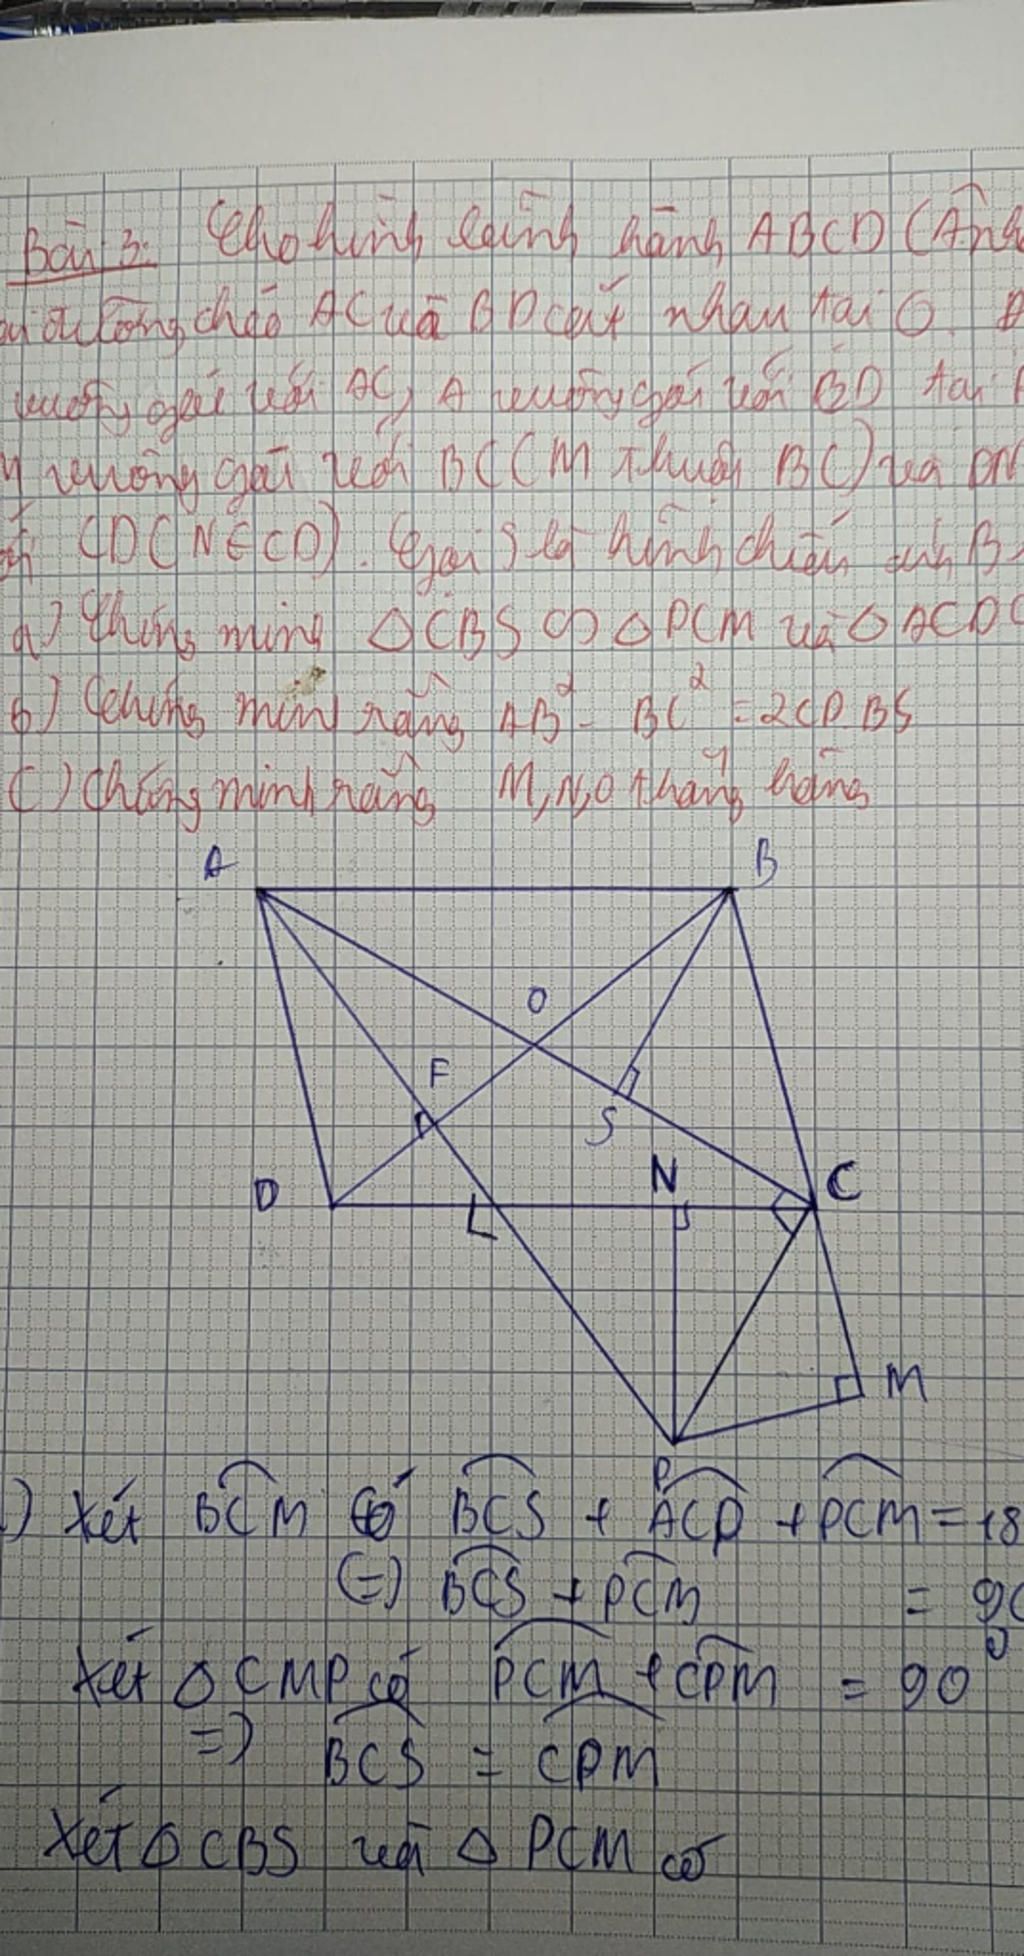 Bài 3: Cho hình bình hành ABCD (Ânh
đường chéo AC và BD cắt nhau tại O.
vuông góc với AC, A vuông góc với BD tại P
M vuông góc với BC (M thuộc BC) và PN
CD (N∈CD). Gọi S là hình chiếu của B
a) Chứng minh △CBS ∽ △PCM và △ACD
b) Chứng minh rằng AB² - BC² = 2CP.BS
c) Chứng minh rằng M,N,O thẳng hàng
A B
O
F
S
D L N C
M
P
) Xét BCM có BCS + ACP + PCM = 18
(=) BCS + PCM = 90
Xét △CMP có PCM + CPM = 90⁰
=> BCS = CPM
Xét △CBS và △PCM có